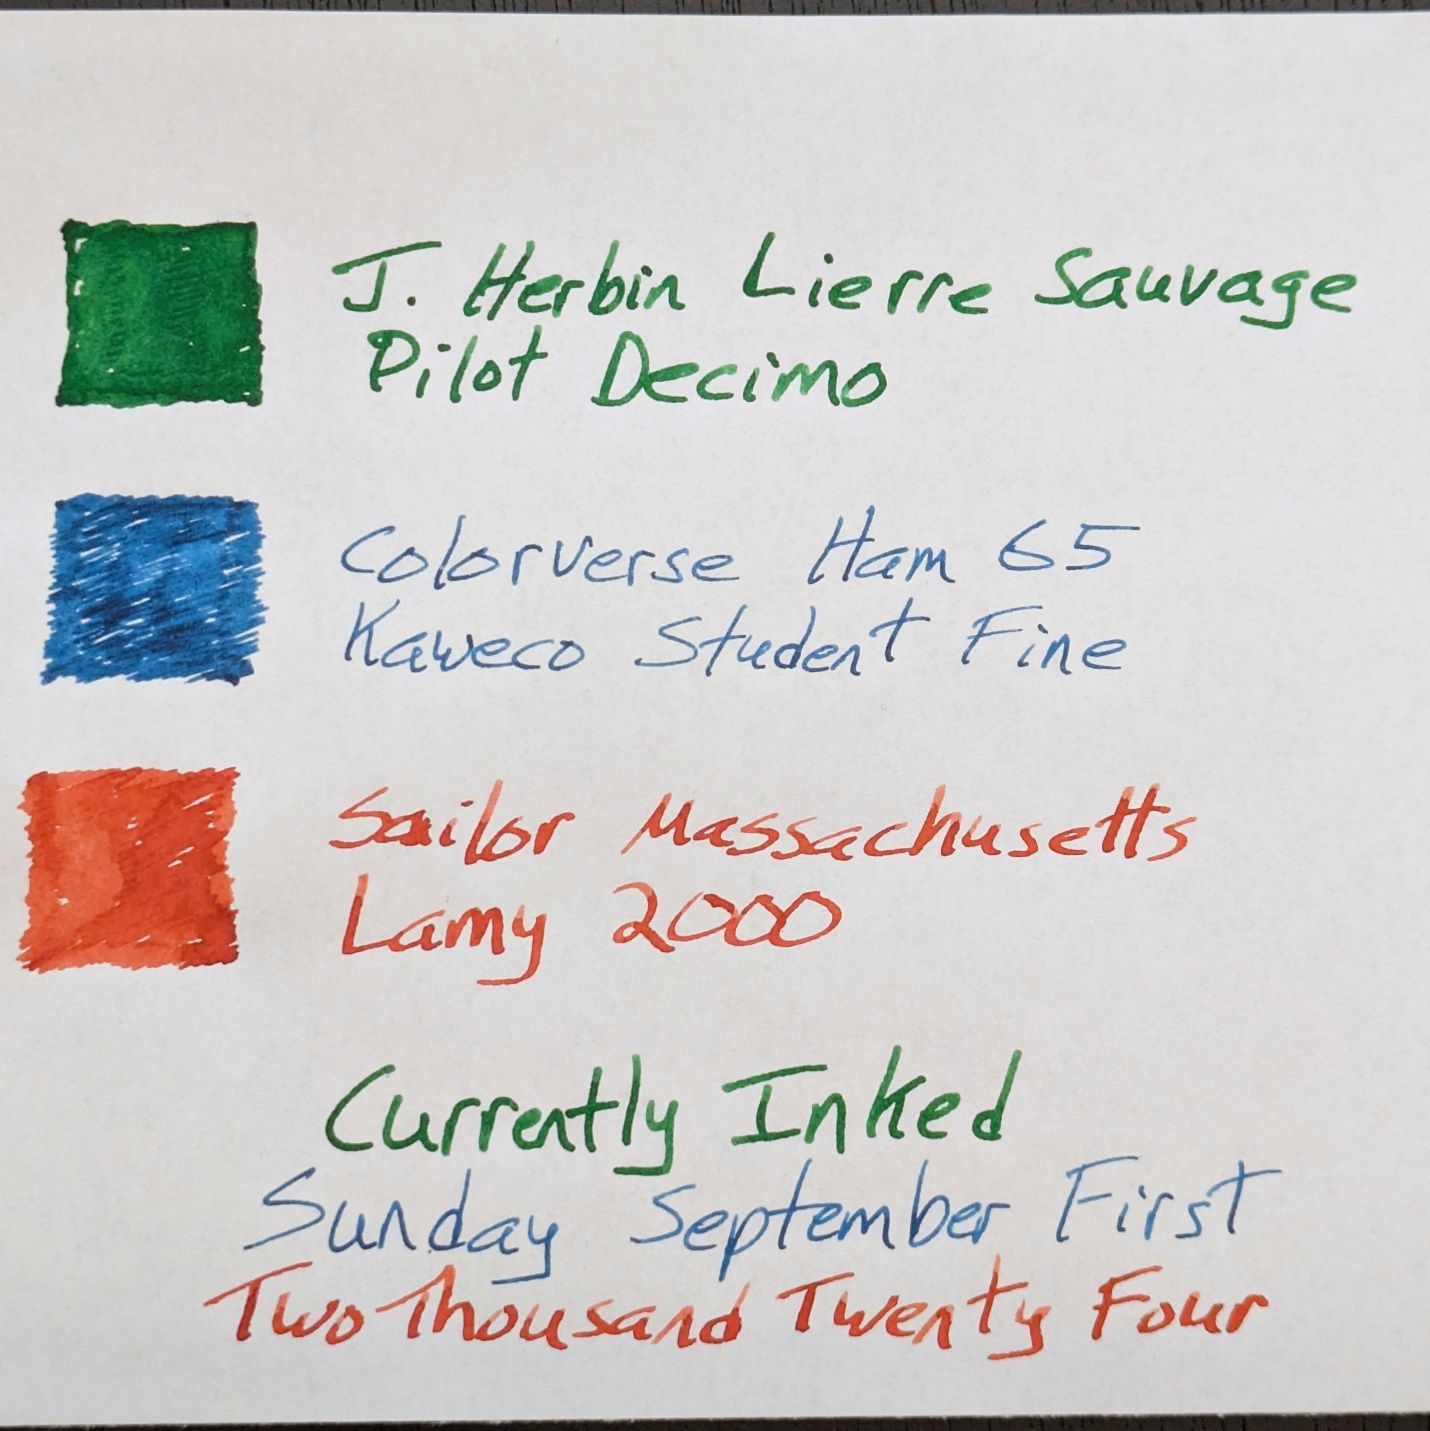 J. Herbin Lierre Sauvage
Pilot Decimo
Colorverse Ham 65
Kaweco Student Fine
Sailor Massachusetts
Lamy 2000
Currently Inked
Sunday September First
Two Thousand Twenty Four